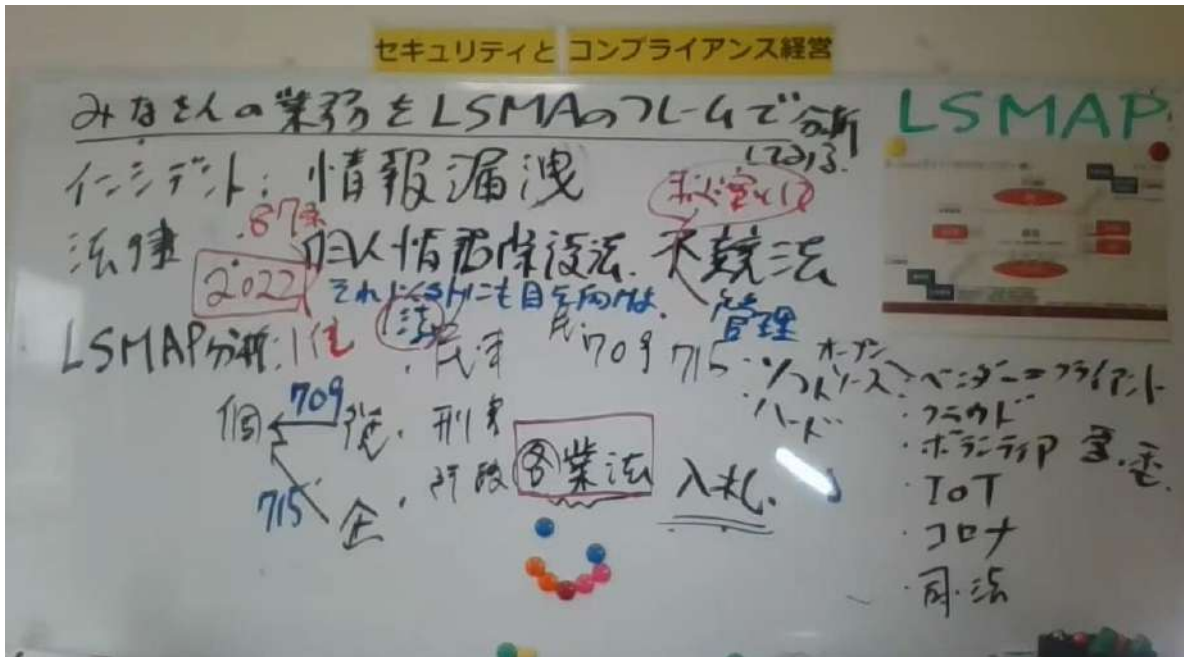 セキュリティと コンプライアンス経営
みなさんの業務をLSMAのフレームで分析
してみる.
LSMAP
インシデント: 情報漏洩
法律 個人情報保護法. 不競法
2022
それ以外にも目を向けよ.
管理
LSMAP分析: 1位
法
・民事 民709 715
・刑事
・行政 各業法 入札.
個 709 従
715 企
オープン
・ソフトソース
・ハード
・ベンダー=クライアント
・クラウド
・ボランティア
・IoT
・コロナ
・司法